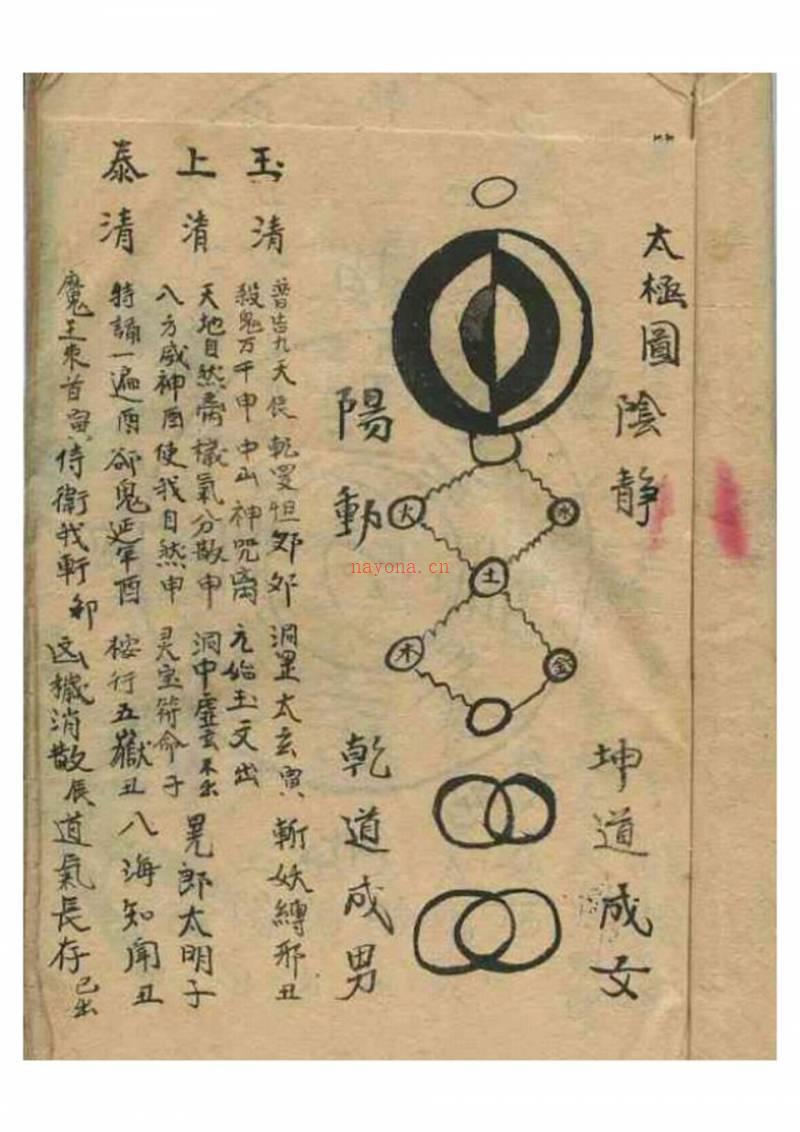 太極圖
陰靜
坤道成女
火
水
土
木
金
陽動
乾道成男
玉清
上清
泰清
普告九天 乾罡怛 郊郊 洞罡太玄寅 斬妖縛邪丑
殺鬼万千申 中山神咒离 元始玉文出
天地自然 穢氣分散申 洞中虛玄 出 晃郎太明子
八方威神酉 使我自然申 灵宝符命子
特誦一遍酉 卻鬼延年酉 桉行五嶽丑 八海知聞丑
魔王束首寅 侍衛我軒卯 凶穢消散辰 道氣長存 已出
nayona.cn